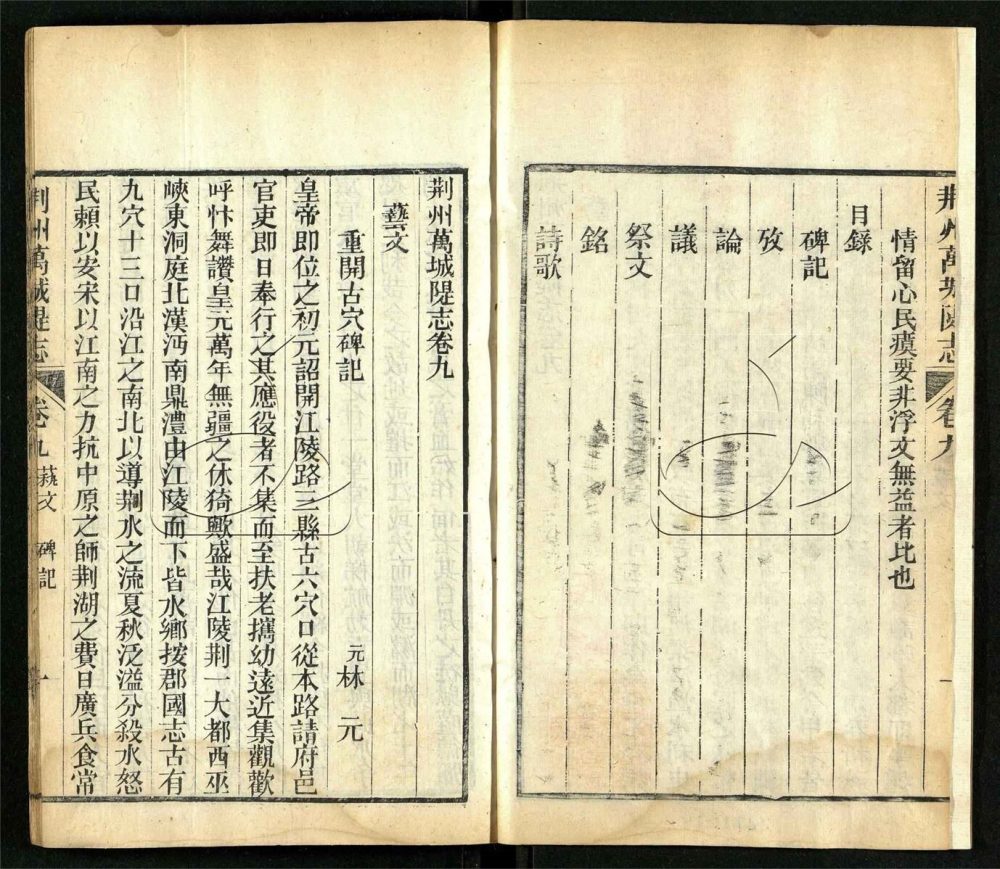 荆州萬城隄志
卷九
情留心民瘼要非浮文無益者比也
目錄
碑記
攷
論
議
祭文
銘
詩歌
荆州萬城隄志卷九
藝文
重開古穴碑記
元林元
皇帝即位之初元詔開江陵路三縣古六穴口從本路請府邑
官吏即日奉行之其應役者不集而至扶老攜幼遠近集觀歡
呼忭舞讚皇元萬年無疆之休猗歟盛哉江陵荆一大都西巫
峽東洞庭北漢沔南鼎澧由江陵而下皆水鄉按郡國志古有
九穴十三口沿江之南北以導荆水之流夏秋泛溢分殺水怒
民賴以安宋以江南之力抗中原之師荆湖之費日廣兵食常
荆州萬城隄志
卷九
藝文
碑記
一